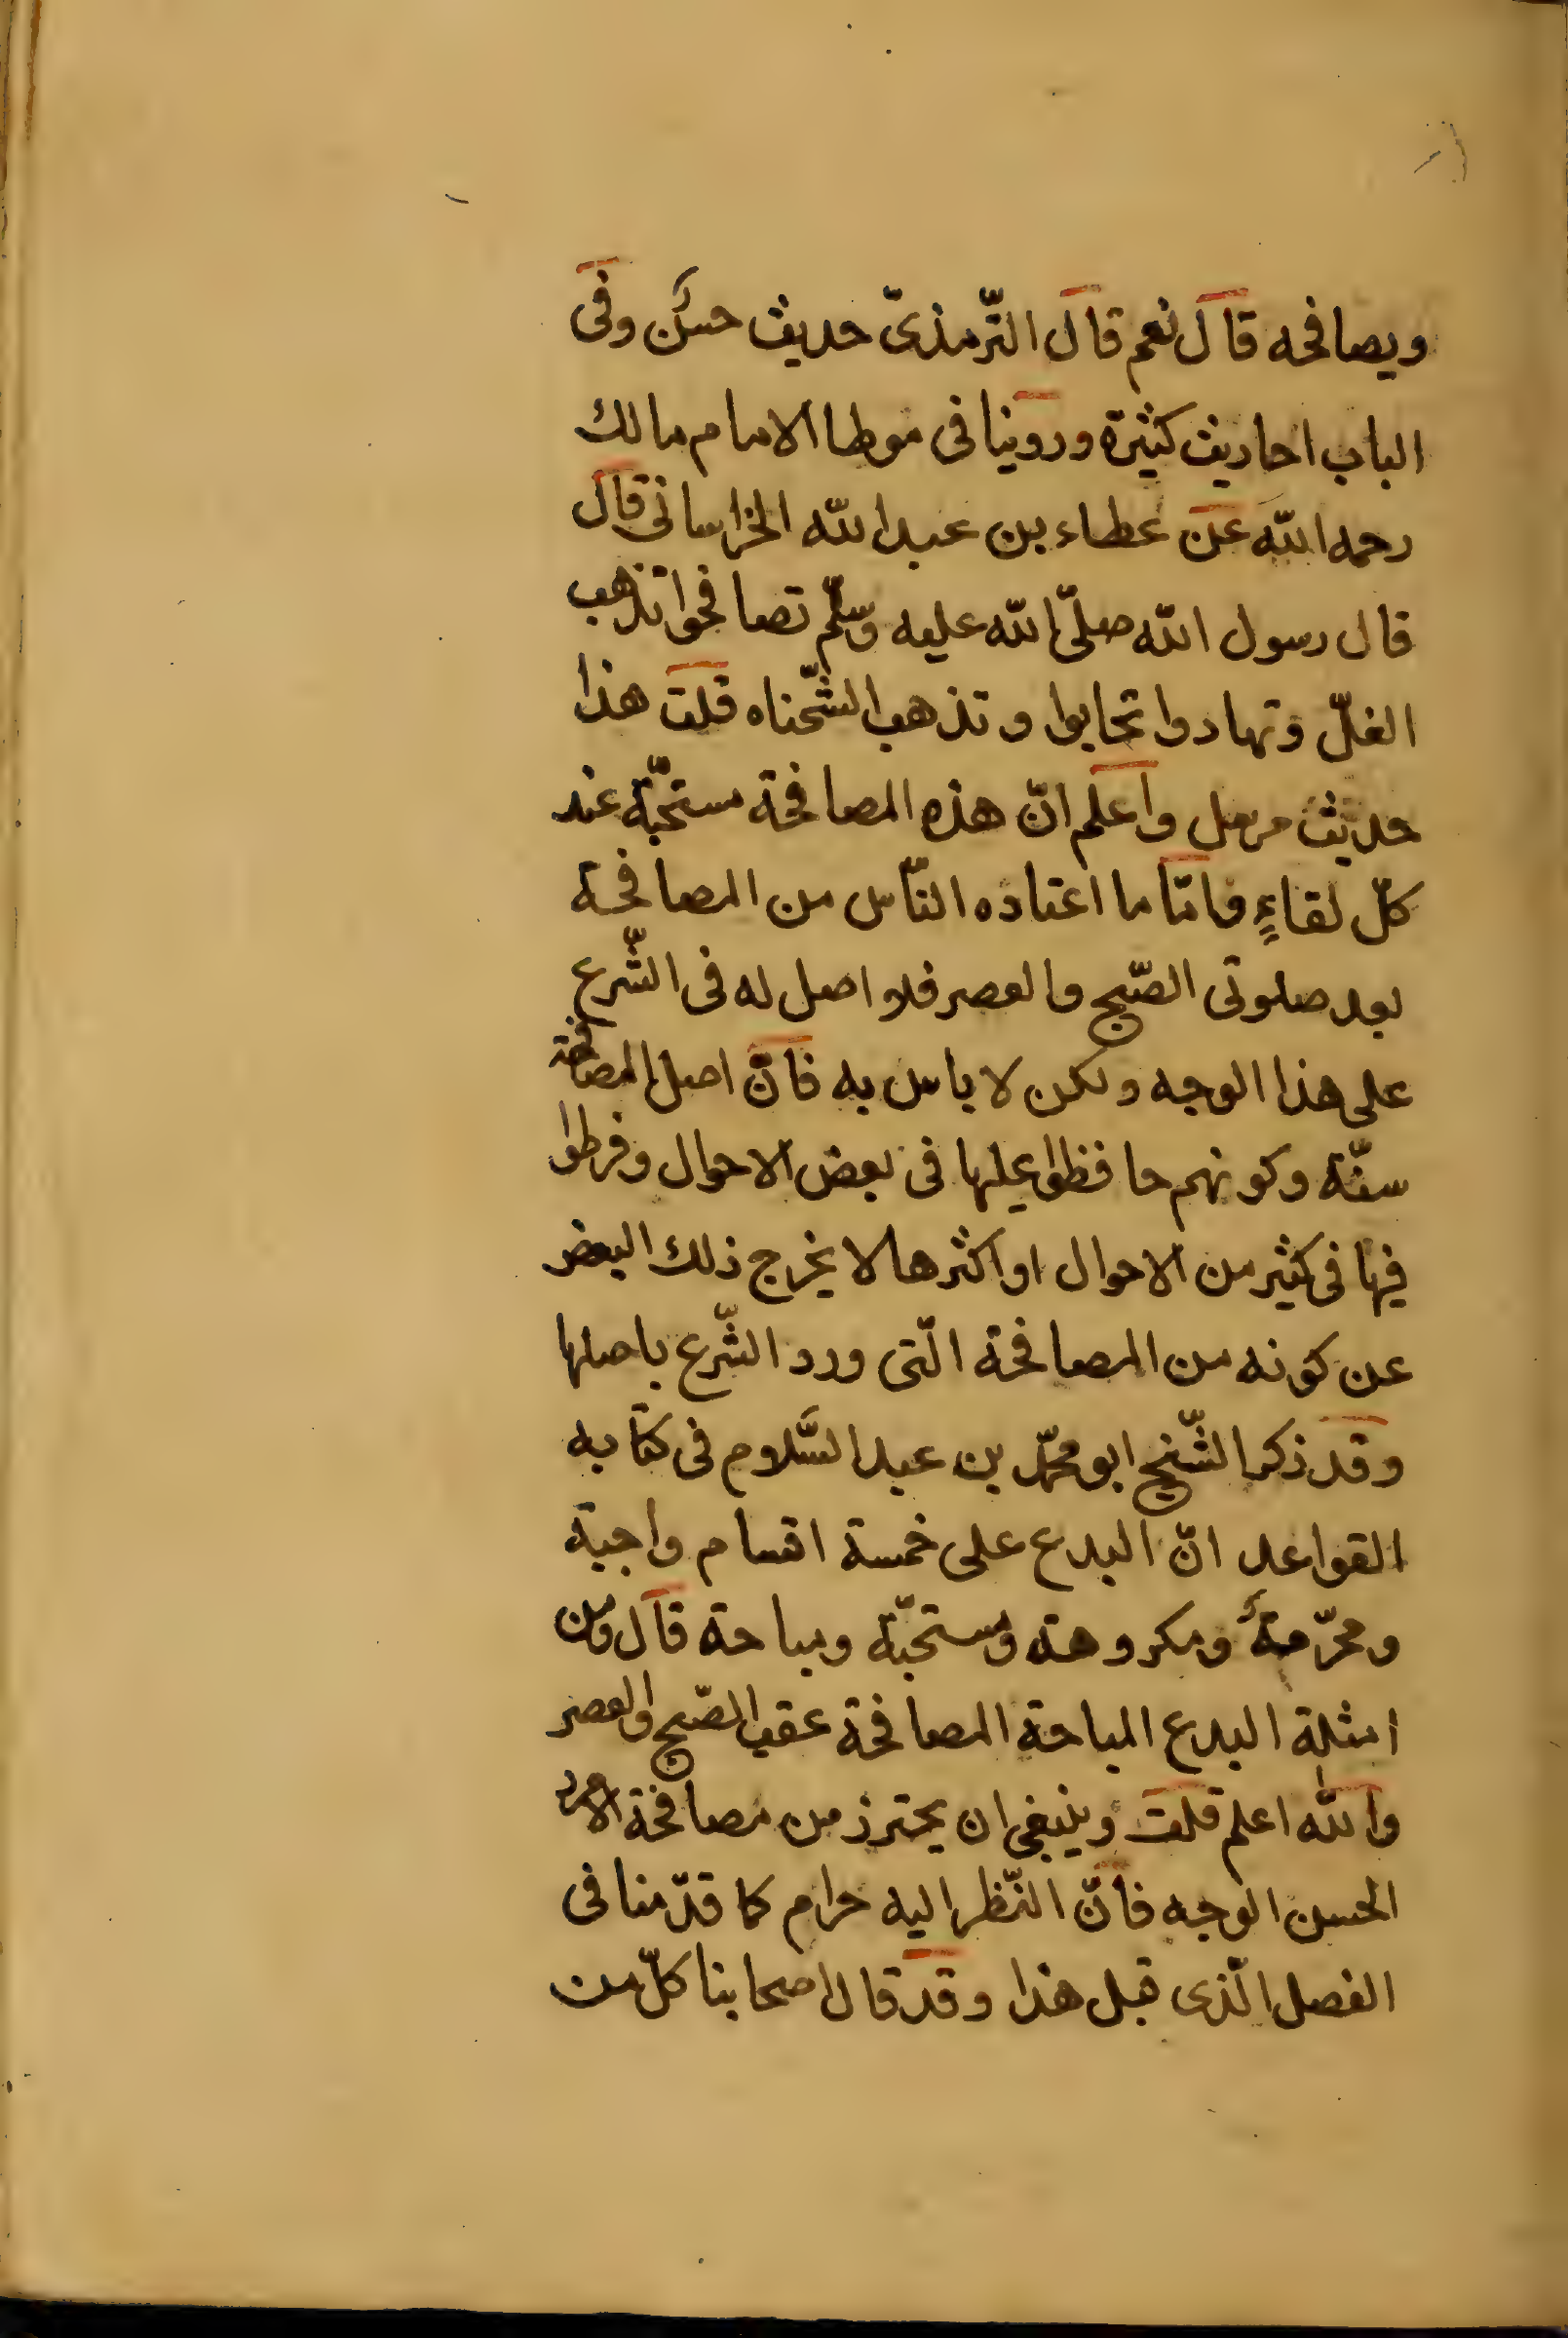 ويصافحه قال نعم قال التّرمذىّ حديث حسن وفى
الباب احاديث كثيرة وروينا فى موطا الامام مالك
رحمه الله عن عطاء بن عبدالله الخراسانى قال
قال رسول الله صلّى الله عليه وسلّم تصافحوا تذهب
الغلّ وتهادوا تحابوا وتذهب الشّحناه قلت هذا
حديث مرسل واعلم انّ هذه المصافحة مستحبّة عند
كلّ لقاءٍ فامّا ما اعتاده النّاس من المصافحة
بعد صلوتى الصّبح والعصر فلا اصل له فى الشّرع
على هذا الوجه ولكن لا باس به فانّ اصل المصافحة
سنّة وكونهم حافظوا عليها فى بعض الاحوال وفرطوا
فيها فى كثير من الاحوال او اكثرها لا يخرج ذلك البعض
عن كونه من المصافحة الّتى ورد الشّرع باصلها
وقد ذكر الشّيخ ابو محمّد بن عبد السّلام فى كتابه
القواعد انّ البدع على خمسة اقسام واجبة
ومحرّمة ومكروهة ومستحبّة ومباحة قال ومن
امثلة البدع المباحة المصافحة عقيب الصّبح والعصر
والله اعلم قلت وينبغى ان يحترز من مصافحة الامرد
الحسن الوجه فانّ النّظر اليه حرام كما قدّمنا فى
الفصل الّذى قبل هذا وقد قال اصحابنا كلّ من